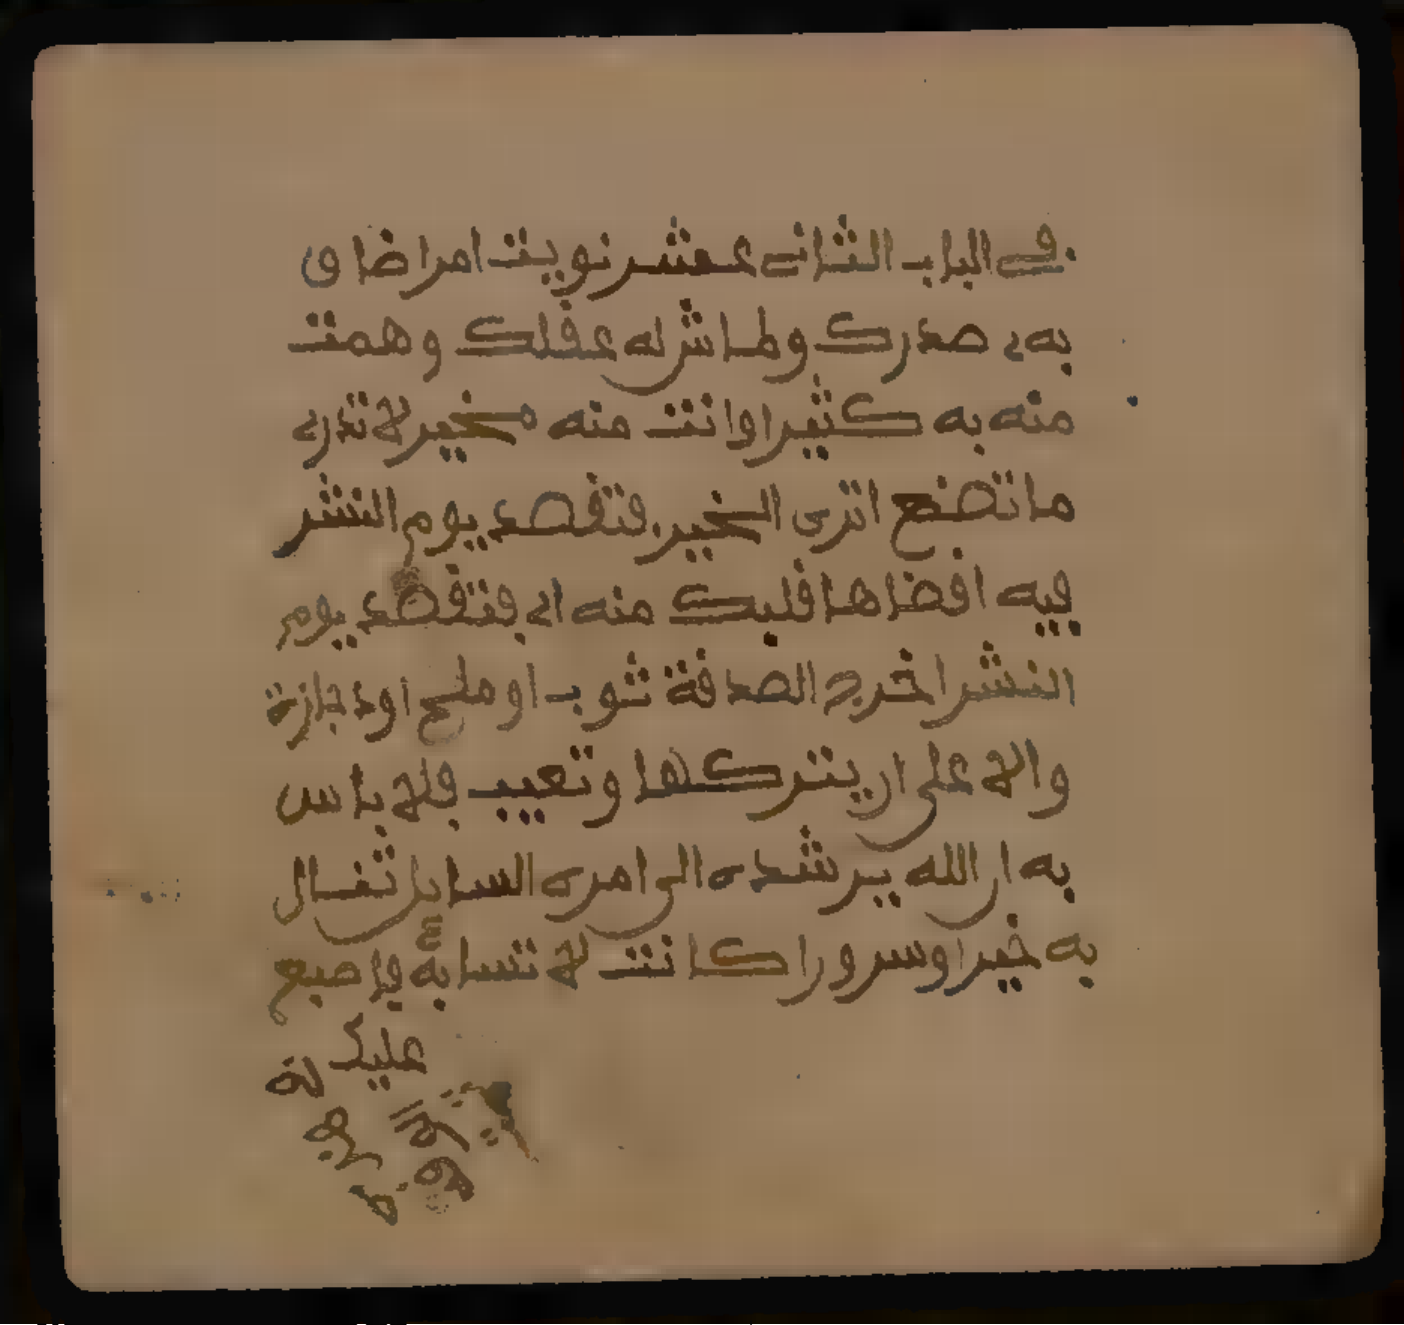 في الباب الثاني عشر نويت امرا ضاق
به صدرك وطاش له عقلك وهمت
منه به كثيرا وانت منه مخير لا تدري
ما تصنع اترى الخير فتقصد يوم النشر
فيه اقضاها قلبك منه اي فتقصد يوم
النشر اخرج الصدقة ثوب او ملح او دجازة
والا على ان يتركها وتعييب فلا باس
به ان الله يرشده الى امره السايل تفسال
به خيرا وسرورا كانت لا تنسا به فاصبع
عليك